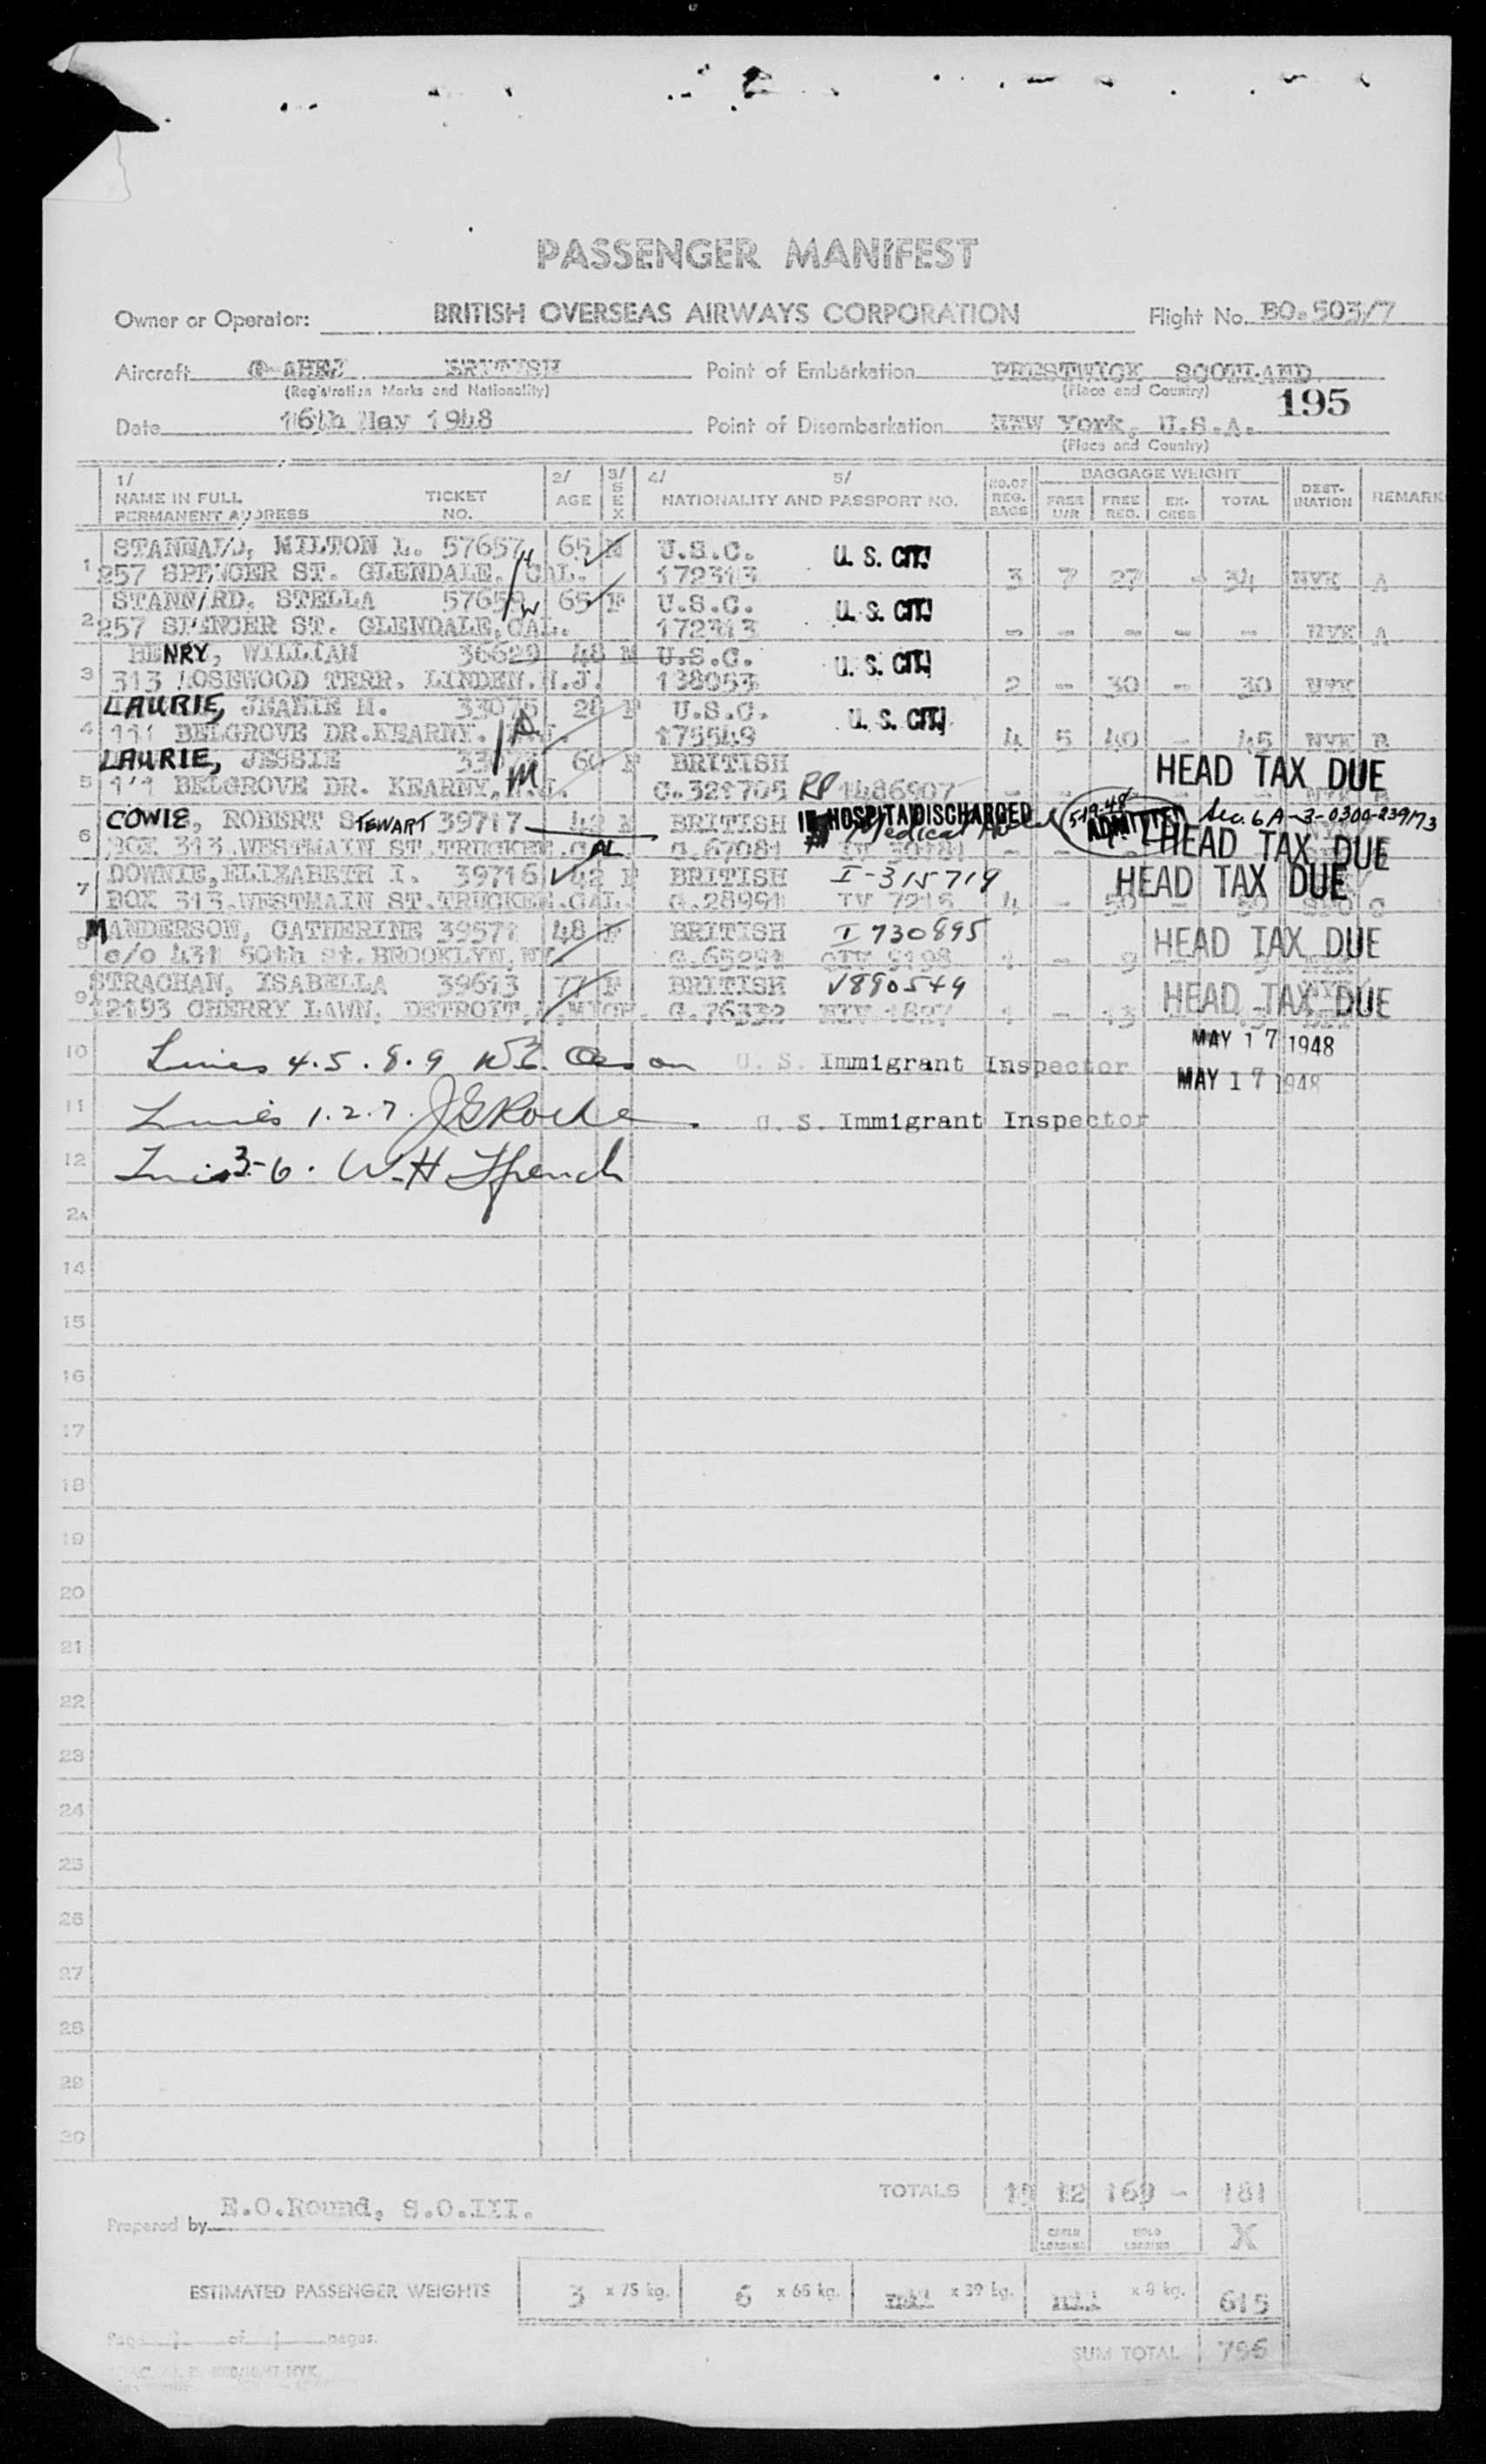 PASSENGER MANIFEST
Owner or Operator: BRITISH OVERSEAS AIRWAYS CORPORATION Flight No. BO.503/7
Aircraft G-AHEJ BRITISH Point of Embarkation PRESTWICK SCOTLAND
(Registration Marks and Nationality) (Place and Country)
195
Date 16th May 1948 Point of Disembarkation NEW York, U.S.A.
(Place and Country)
1/ 2/ 3/ 4/ 5/ NO. OF REG. BAGS BAGGAGE WEIGHT
NAME IN FULL TICKET AGE SEX NATIONALITY AND PASSPORT NO. FREE U/R FREE REG. EX-CESS TOTAL DEST-INATION REMARK
PERMANENT ADDRESS NO.
1 STANNARD, MILTON L. 57657 65 M U.S.C. U. S. CIT.
257 SPENCER ST. GLENDALE. CAL. H 172313 3 7 27 - 34 NYK A
2 STANNARD. STELLA 57659 65 F U.S.C. U. S. CIT.
257 SPENCER ST. GLENDALE, CAL. W 172313 - - - - - NYK A
3 HENRY, WILLIAM 36629 48 M U.S.C. U. S. CIT.
313 ROSEWOOD TERR. LINDEN. N.J. 138053 2 - 30 - 30 NYK
4 LAURIE, JEANIE M. 33076 28 F U.S.C. U. S. CIT.
111 BELGROVE DR. KEARNY. N.J. 175549 4 5 40 - 45 NYK B
5 LAURIE, JESSIE 60 F BRITISH HEAD TAX DUE
111 BELGROVE DR. KEARNY, N.J. M C.321705 RP 1486907
6 COWIE, ROBERT STEWART 39717 42 M BRITISH IN HOSPITAL DISCHARGED 5-19-48 ADMITTED Sec. 6 A-3-0300-239173
BOX 313.WESTMAIN ST.TRUCKEE.CAL C.67081 Medical IV 30181 HEAD TAX DUE
7 DOWNIE, ELIZABETH I. 39716 42 F BRITISH I-315719 HEAD TAX DUE
BOX 313.WESTMAIN ST.TRUCKEE.CAL. C.28991 IV 7215 4 - 50 - 50 SFO C
8 MANDERSON, CATHERINE 39571 48 F BRITISH I 730895 HEAD TAX DUE
c/o 431 50th St. BROOKLYN, NY C.65291 QIV 9198 1 - 9
9 STRACHAN, ISABELLA 39613 77 F BRITISH V890544 HEAD TAX DUE
12193 CHERRY LAWN, DETROIT, MICH. C.76332 NIV 1827 1 - 13
MAY 17 1948
10 Lines 4.5.8.9 U. S. Immigrant Inspector
MAY 17 1948
11 Lines 1.2.7. J G Roche U. S. Immigrant Inspector
12 Lines 3-6. W. H. Ffrench
2A
14
15
16
17
18
19
20
21
22
23
24
25
26
27
28
29
30
TOTALS 15 12 169 - 181
Prepared by E.O.Round, S.O.III.
CABIN LOADING HOLD LOADING X
ESTIMATED PASSENGER WEIGHTS 3 x 75 kg. 6 x 65 kg. nil x 39 kg. nil x 8 kg. 615
Page 1 of 1 pages.
SUM TOTAL 796